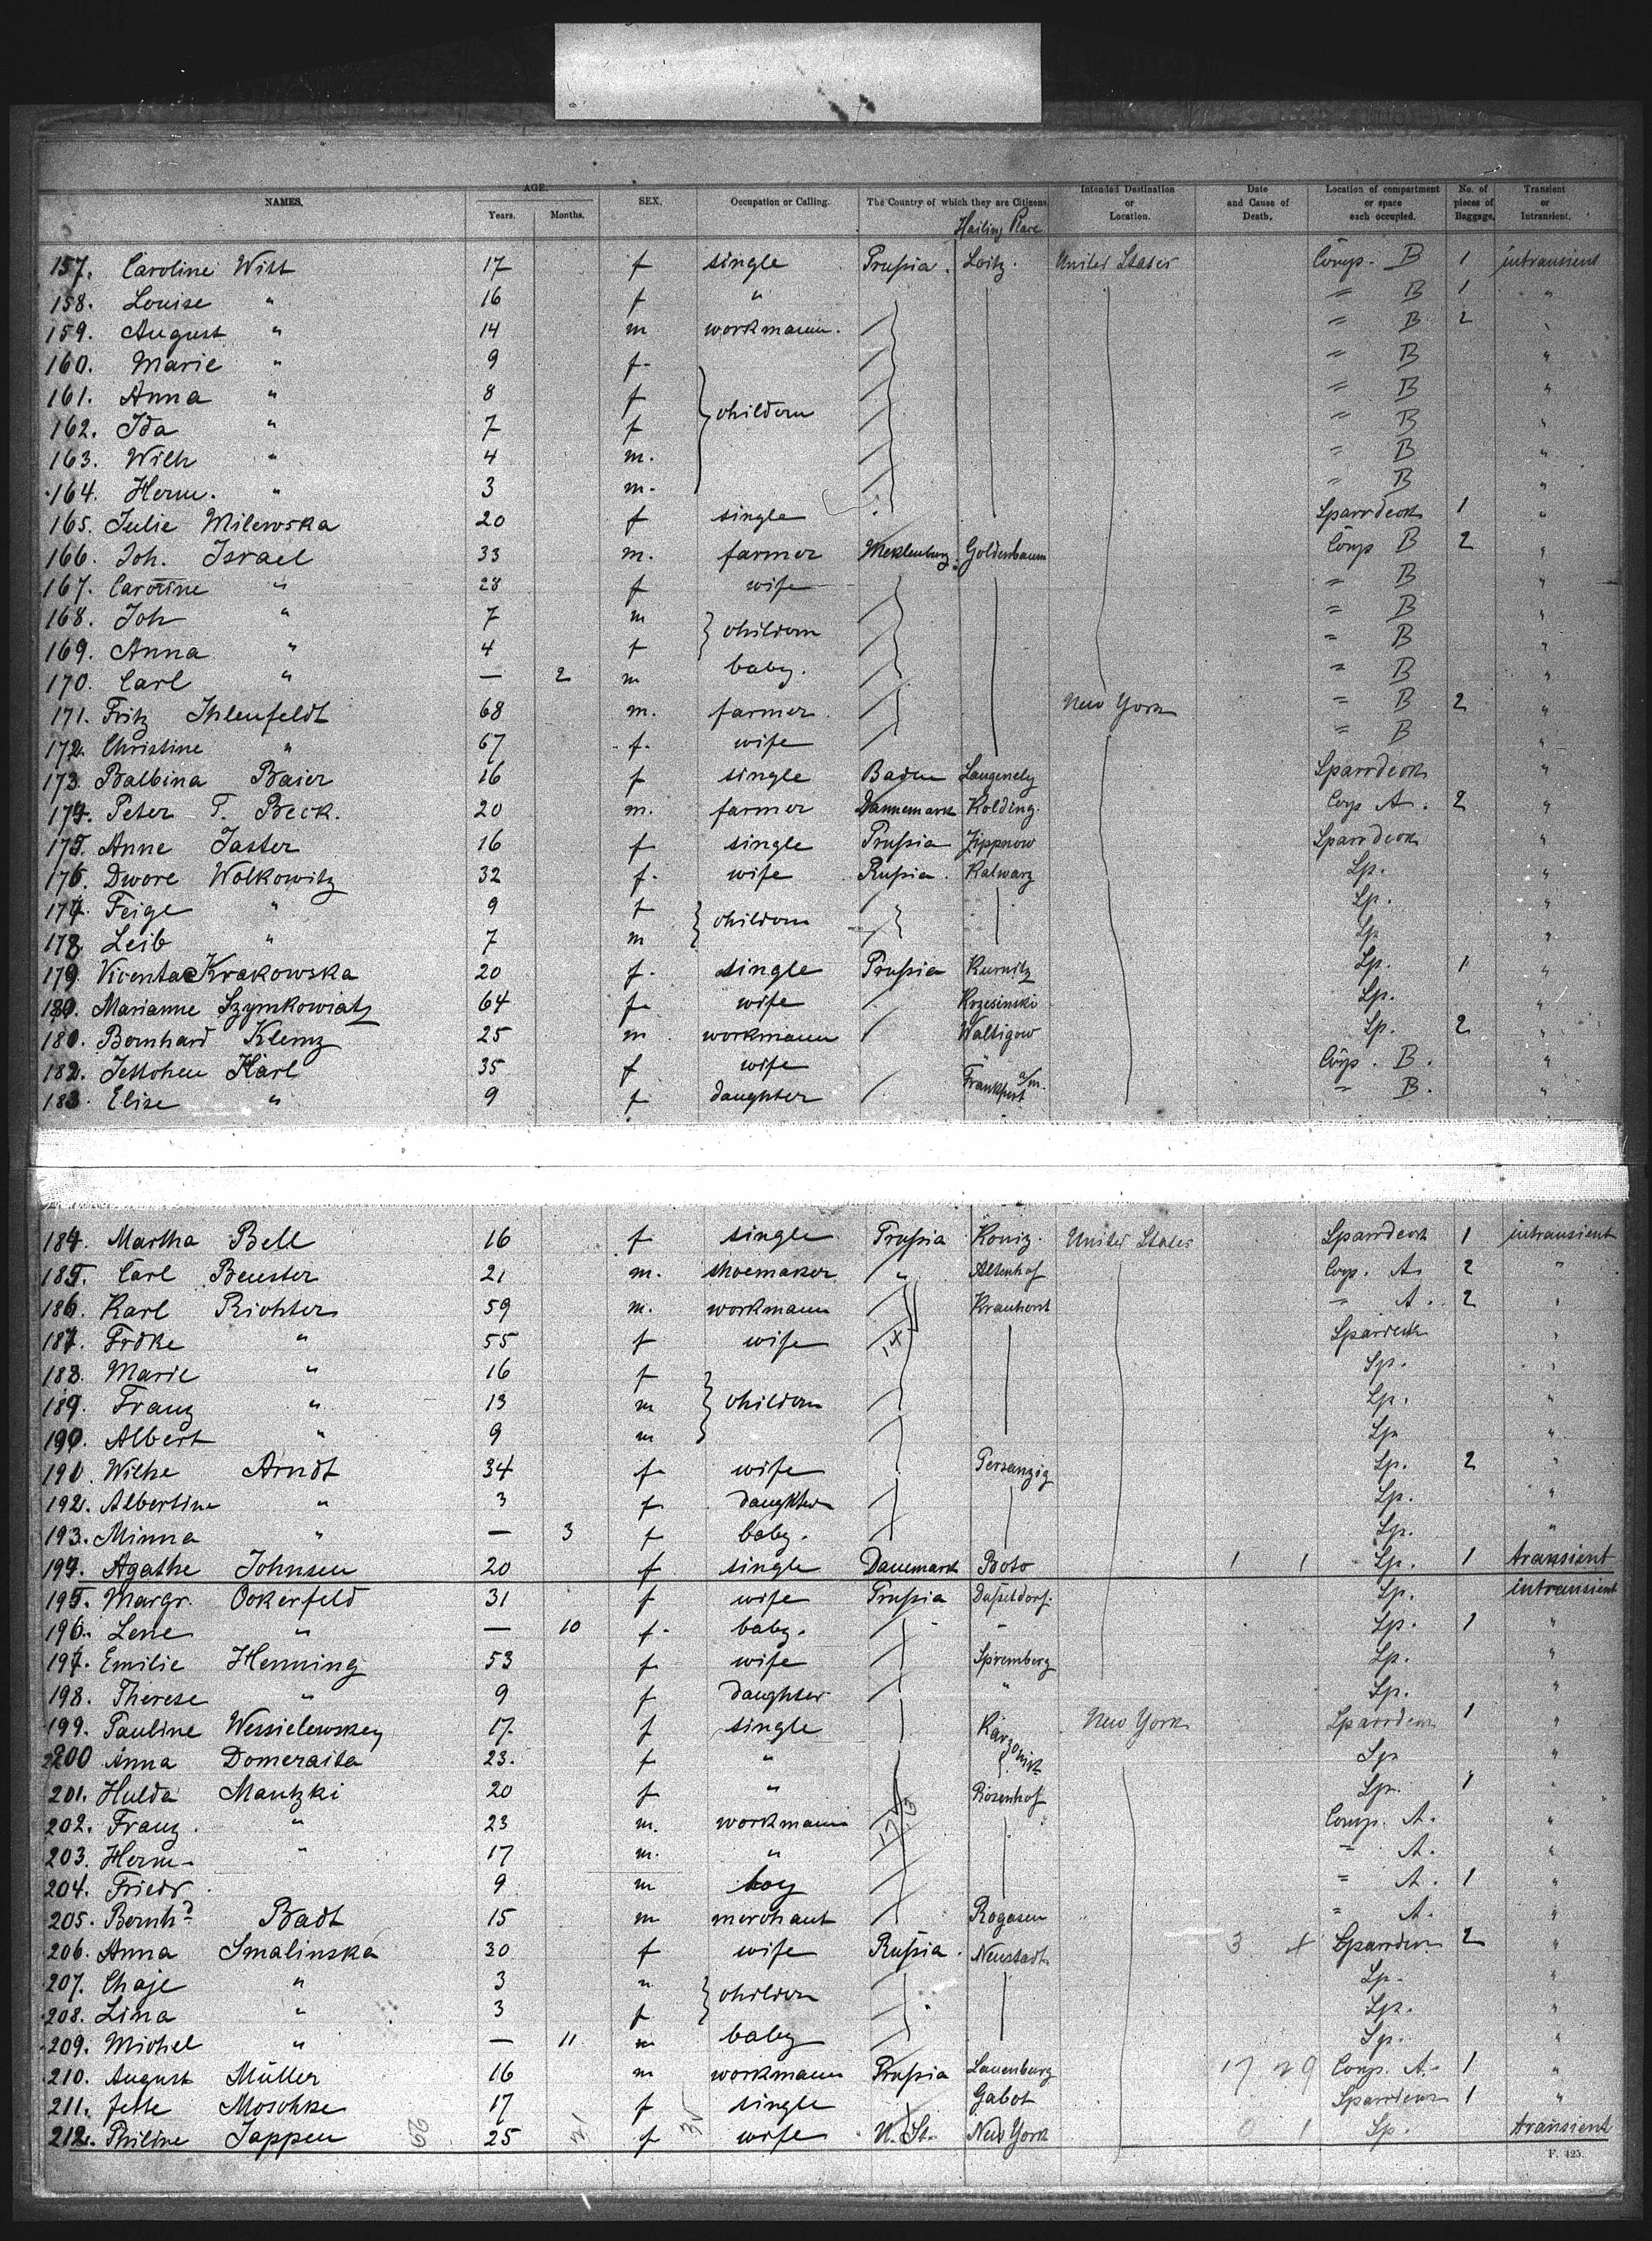 NAMES. AGE. Years. Months. SEX. Occupation or Calling. The Country of which they are Citizens. Intended Destination or Location. Date and Cause of Death. Location of compartment or space each occupied. No. of pieces of Baggage. Transient or Intransient.
Hailing Place
157. Caroline Witt 17 f single Prussia. Loitz. United States Comp. B 1 intransient
158. Louise " 16 f " " B 1 "
159. August " 14 m workmann. " B 2 "
160. Marie " 9 f. " B "
161. Anna " 8 f childern " B "
162. Ida " 7 f " B "
163. Wilh " 4 m. " B "
164. Herm. " 3 m. " B "
165. Julie Milewska 20 f single Sparrdeck 1 "
166. Joh. Israel 33 m. farmer Meklenburg. Goldenbaum Comp B 2 "
167. Caroline " 28 f wife " B "
168. Joh " 7 m childern " B "
169. Anna " 4 f " B "
170. Carl " — 2 m baby. " B "
171. Fritz Ihlenfeldt 68 m. farmer. New York " B 2 "
172. Christine " 67 f. wife " B "
173. Balbina Baier 16 f single Baden Sparrdeck "
174. Peter T. Beck. 20 m. farmer Dannemark Kolding. Comp A. 2 "
175. Anne Jaster 16 f single Prussia Zippnow Sparrdeck "
176. Dwore Wolkowitz 32 f. wife Russia. Kalwary Sp. "
177. Feige " 9 f childern Sp. "
178. Leib " 7 m Sp. "
179. Krakowska 20 f. single Prussia Kurnitz Sp. 1 "
180. Marianne Szymkowiak 64 f. wife Krzesinski Sp. "
180. Bernhard Klemz 25 m workmann Sp. 2 "
182. Karl 35 f wife Frankfurt a/m. Comp. B. "
183. Elise " 9 f daughter " B. "
184. Martha Bell 16 f single Prussia Koniz. United States Sparrdeck 1 intransient
185. Carl Beuster 21 m. shoemaker " Altenhof Comp. A. 2 "
186. Karl Richter 59 m. workmann Krauhorst " A. 2 "
187. Frdke " 55 f wife Sparrdeck "
188. Marie " 16 f childern Sp. "
189. Franz " 13 m Sp. "
190. Albert " 9 m Sp "
191. Wilhe Arndt 34 f wife Persanzig Sp. 2 "
192. Albertine " 3 f. daughter Sp. "
193. Minna " — 3 f baby. Sp. "
194. Agathe Johnsen 20 f single Danemark Boto 1 1 Sp. 1 transient
195. Margr. Ockerfeld 31 f wife Prussia Dusseldorf. Sp. intransient
196. Lene " — 10 f. baby. " Sp. 1 "
197. Emilie Henning 53 f. wife Spremberg Sp. "
198. Therese " 9 f daughter " Sp. "
199. Pauline Wessielewskey 17. f single New York Sparrdeck 1 "
200 Anna Domeraita 23. f " Sp "
201. Hulda Mantzki 20 f " Rosenhof Sp. 1 "
202. Franz. " 23 m. workmann Comp. A. "
203. Herm. " 17 m. " " A. "
204. Friedr. 9 m boy " A. 1 "
205. Bernhd Badt 15 m merchant Rogasen " A. "
206. Anna Smalinska 30 f wife Russia. Neustadt 3 4 Sparrdeck 2 "
207. Chaje " 3 " childern Sp. "
208. Lina " 3 f Sp. "
209. Michel " — 11 m baby Sp. "
210. August Müller 16 m workmann Prussia Lauenburg 17 29 Comp. A. 1 "
211. Jette Moschke 17 f single Gabot Sparrdeck 1 "
212. Philine Jappen 25 f wife U. St. New York 0 1 Sp. transient
F. 425.